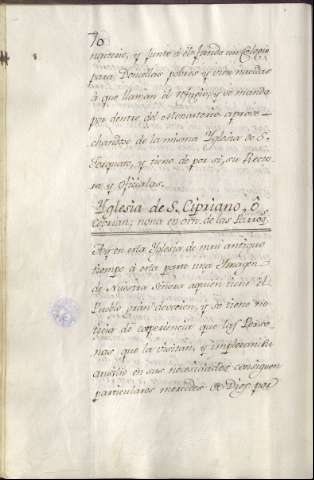 70
nuterio, y junto à èl fundò un Colegio
para Doncellas pobres y vien nacidas
à que llaman el refugio, y se manda
por dentro del Monasterio aprove-
chandose de la misma Yglesia de S.
Pasqual, y tiene de por si, su Recto
ra y oficialas.
Yglesia de S. Cipriano, ô
Ciprian; nona en orn. de las Parroq.
Ay en esta Yglesia de mui antiguo
tiempo à esta parte una Ymagen
de Nuestra Señora à quien tiene el
Pueblo gran devocion, y se tiene no-
ticia de experiencia que las Perso-
nas que la visitan, y imploran su
auxilio en sus necesidades consiguen
particulares mercedes de Dios por